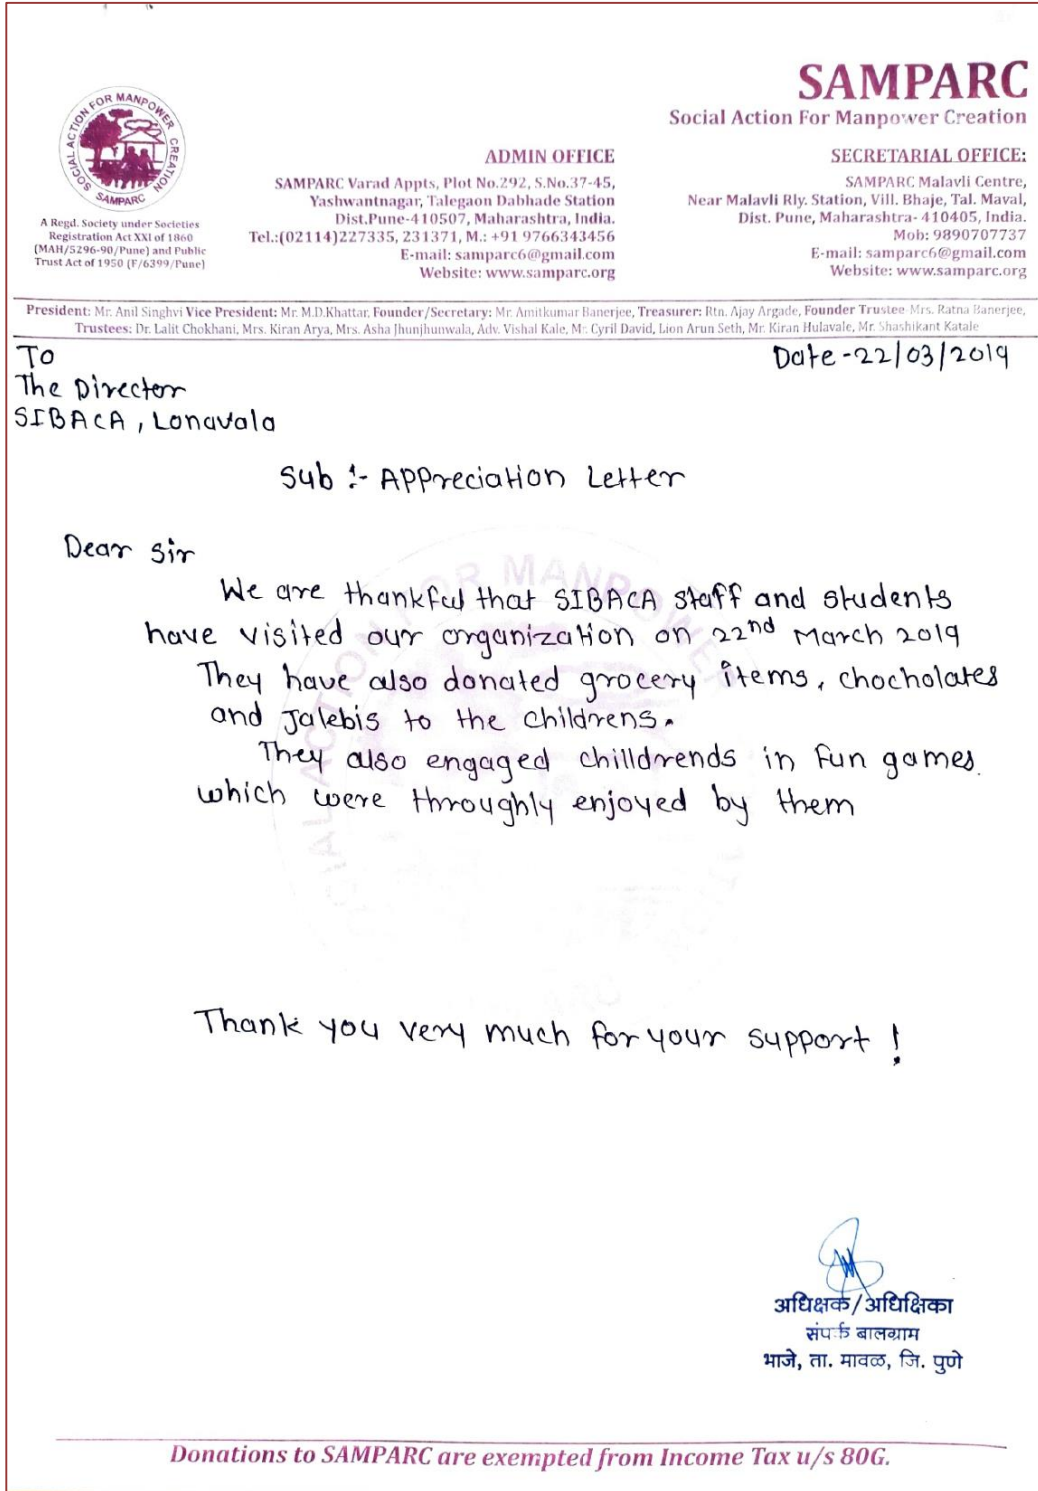 SOCIAL ACTION FOR MANPOWER CREATION
SAMPARC
A Regd. Society under Societies
Registration Act XXI of 1860
(MAH/5296-90/Pune) and Public
Trust Act of 1950 (F/6399/Pune)
SAMPARC
Social Action For Manpower Creation
ADMIN OFFICE
SAMPARC Varad Appts, Plot No.292, S.No.37-45,
Yashwantnagar, Talegaon Dabhade Station
Dist.Pune-410507, Maharashtra, India.
Tel.:(02114)227335, 231371, M.: +91 9766343456
E-mail: samparc6@gmail.com
Website: www.samparc.org
SECRETARIAL OFFICE:
SAMPARC Malavli Centre,
Near Malavli Rly. Station, Vill. Bhaje, Tal. Maval,
Dist. Pune, Maharashtra- 410405, India.
Mob: 9890707737
E-mail: samparc6@gmail.com
Website: www.samparc.org
President: Mr. Anil Singhvi Vice President: Mr. M.D.Khattar, Founder/Secretary: Mr. Amitkumar Banerjee, Treasurer: Rtn. Ajay Argade, Founder Trustee-Mrs. Ratna Banerjee,
Trustees: Dr. Lalit Chokhani, Mrs. Kiran Arya, Mrs. Asha Jhunjhunwala, Adv. Vishal Kale, Mr. Cyril David, Lion Arun Seth, Mr. Kiran Hulavale, Mr. Shashikant Katale
To
Date-22/03/2019
The Director
SIBACA, Lonavala
Sub :- Appreciation Letter
Dear Sir
We are thankful that SIBACA staff and students
have visited our organization on 22nd March 2019
They have also donated grocery items, chocholates
and Jalebis to the childrens.
They also engaged chilldrends in fun games.
which were throughly enjoyed by them
Thank you very much for your support !
अधिक्षक/अधिक्षिका
संपर्क बालग्राम
भाजे, ता. मावळ, जि. पुणे
Donations to SAMPARC are exempted from Income Tax u/s 80G.